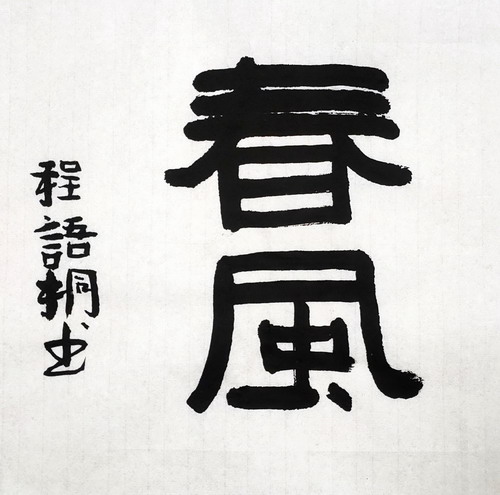 春
風
程語桐书